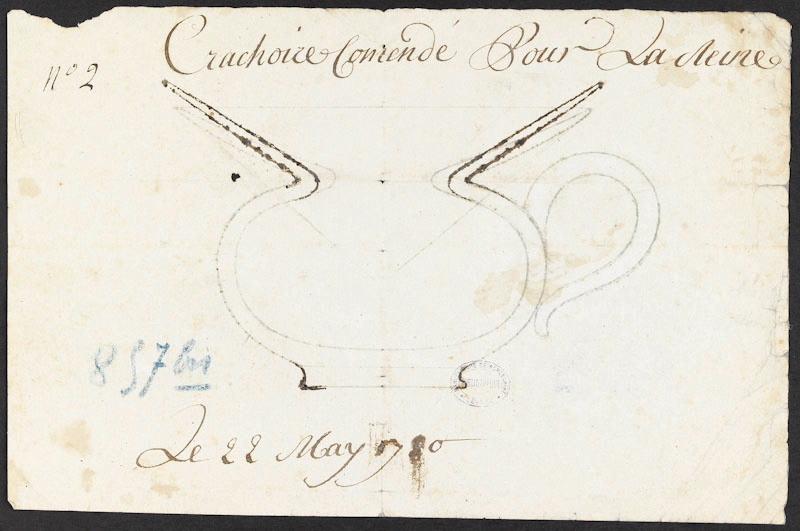 Crachoire Comendé Pour La Reine
nº 2
857 bis
Le 22 May 1780